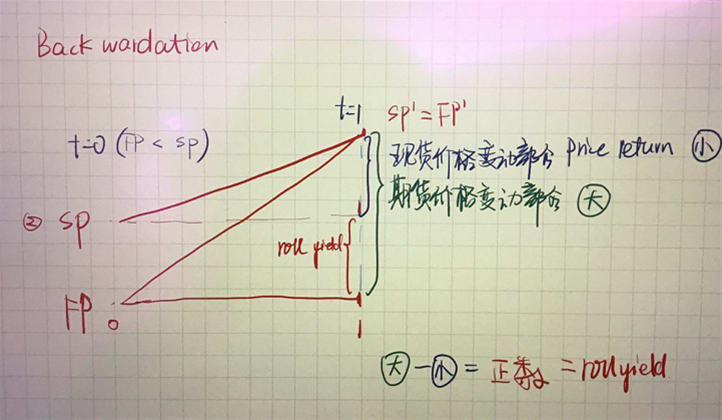 Backwardation
t=1 SP'=FP'
t=0 (FP < SP)
现货价格变动部分 Price return 小
期货价格变动部分 大
② SP
roll yield
FP
0 1
大-小=正数=roll yield